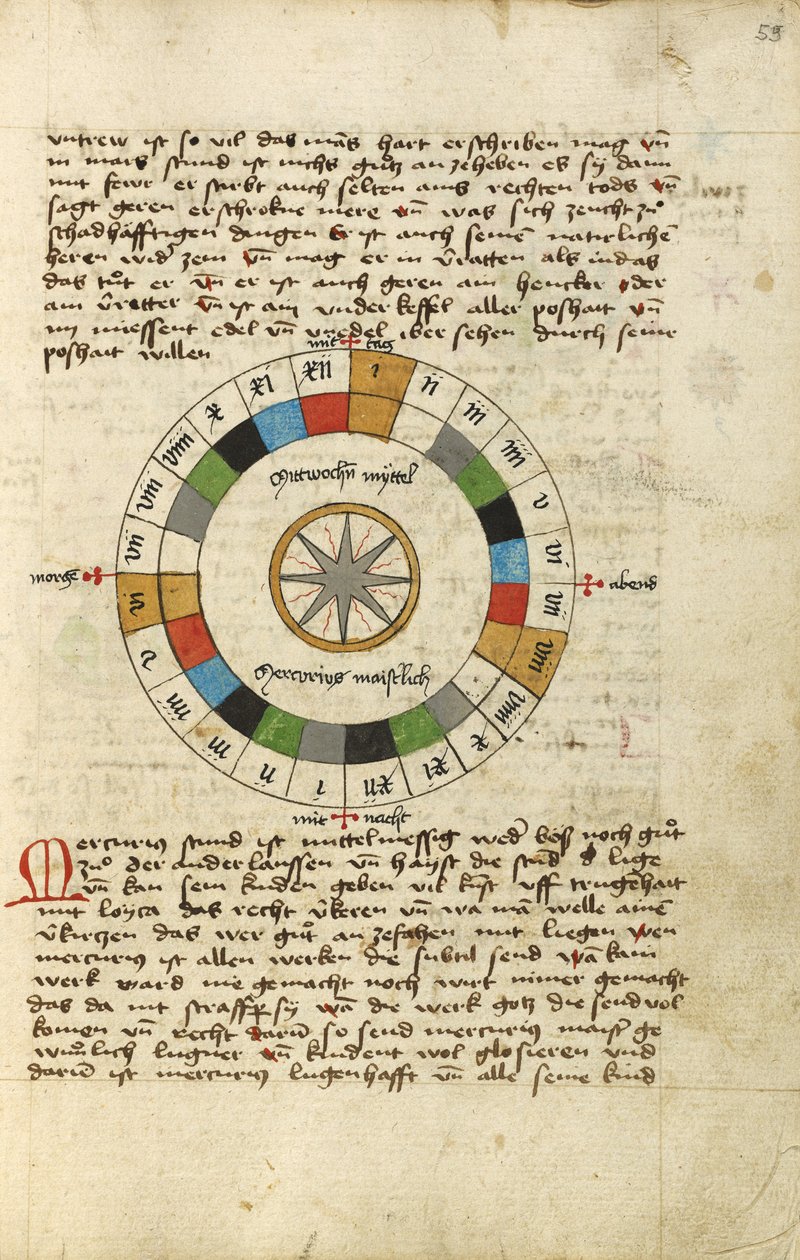 55
vntrew ist so vil das mās hart erschriben mag vn̄
in mars stund ist nichs gůtz an zeheben es sy dann
mit fewr er stirbt auch selten ains rechten tods vn̄
sagt geren erschrokne mere vn̄ was sich zeucht zů
schadhäfftigen dingen Er ist auch seinē natirlichē
heren wider zem vn̄ mag er in v̄ratten als iudas
das tůt er vn̄ er ist auch geren ain hencker oder
ain v̄retter vn̄ ist ain vnder keffel aller poshait vn̄
miessent edel vn̄ vnedel iber sehen durch seine
poshait willen
mit tag
xii i ii iii iiii v vi vii viii viiii x xi xii i ii iii iiii v vi vii viii viiii x xi
Mittwochn̄ myttel
morgē abend
Mercurius maistlich
mit nacht
Mercurius stund ist mittelmessig weder bös noch gůt
zů der ander laussen vn̄ hayst die stūd d lige
vn̄ kan sein kinden geben vil kunst vff trugēhait
mit loyca das recht v̄keren vn̄ wa mā welle ainē
v̄kirczen das wer gůt an zefahen mit liegen wen
mercurius ist allen werken die subtil send wā kain
werk ward nie gemacht noch wirt nimer gemacht
das da nit straffper sy wā die werk gotz die send vol
komen vn̄ recht darū so send mercurius maist ge
wonlich lugner vn̄ kindent wol glosieren vnd
dariē ist mercurius lugenhafft vn̄ alle seine kind